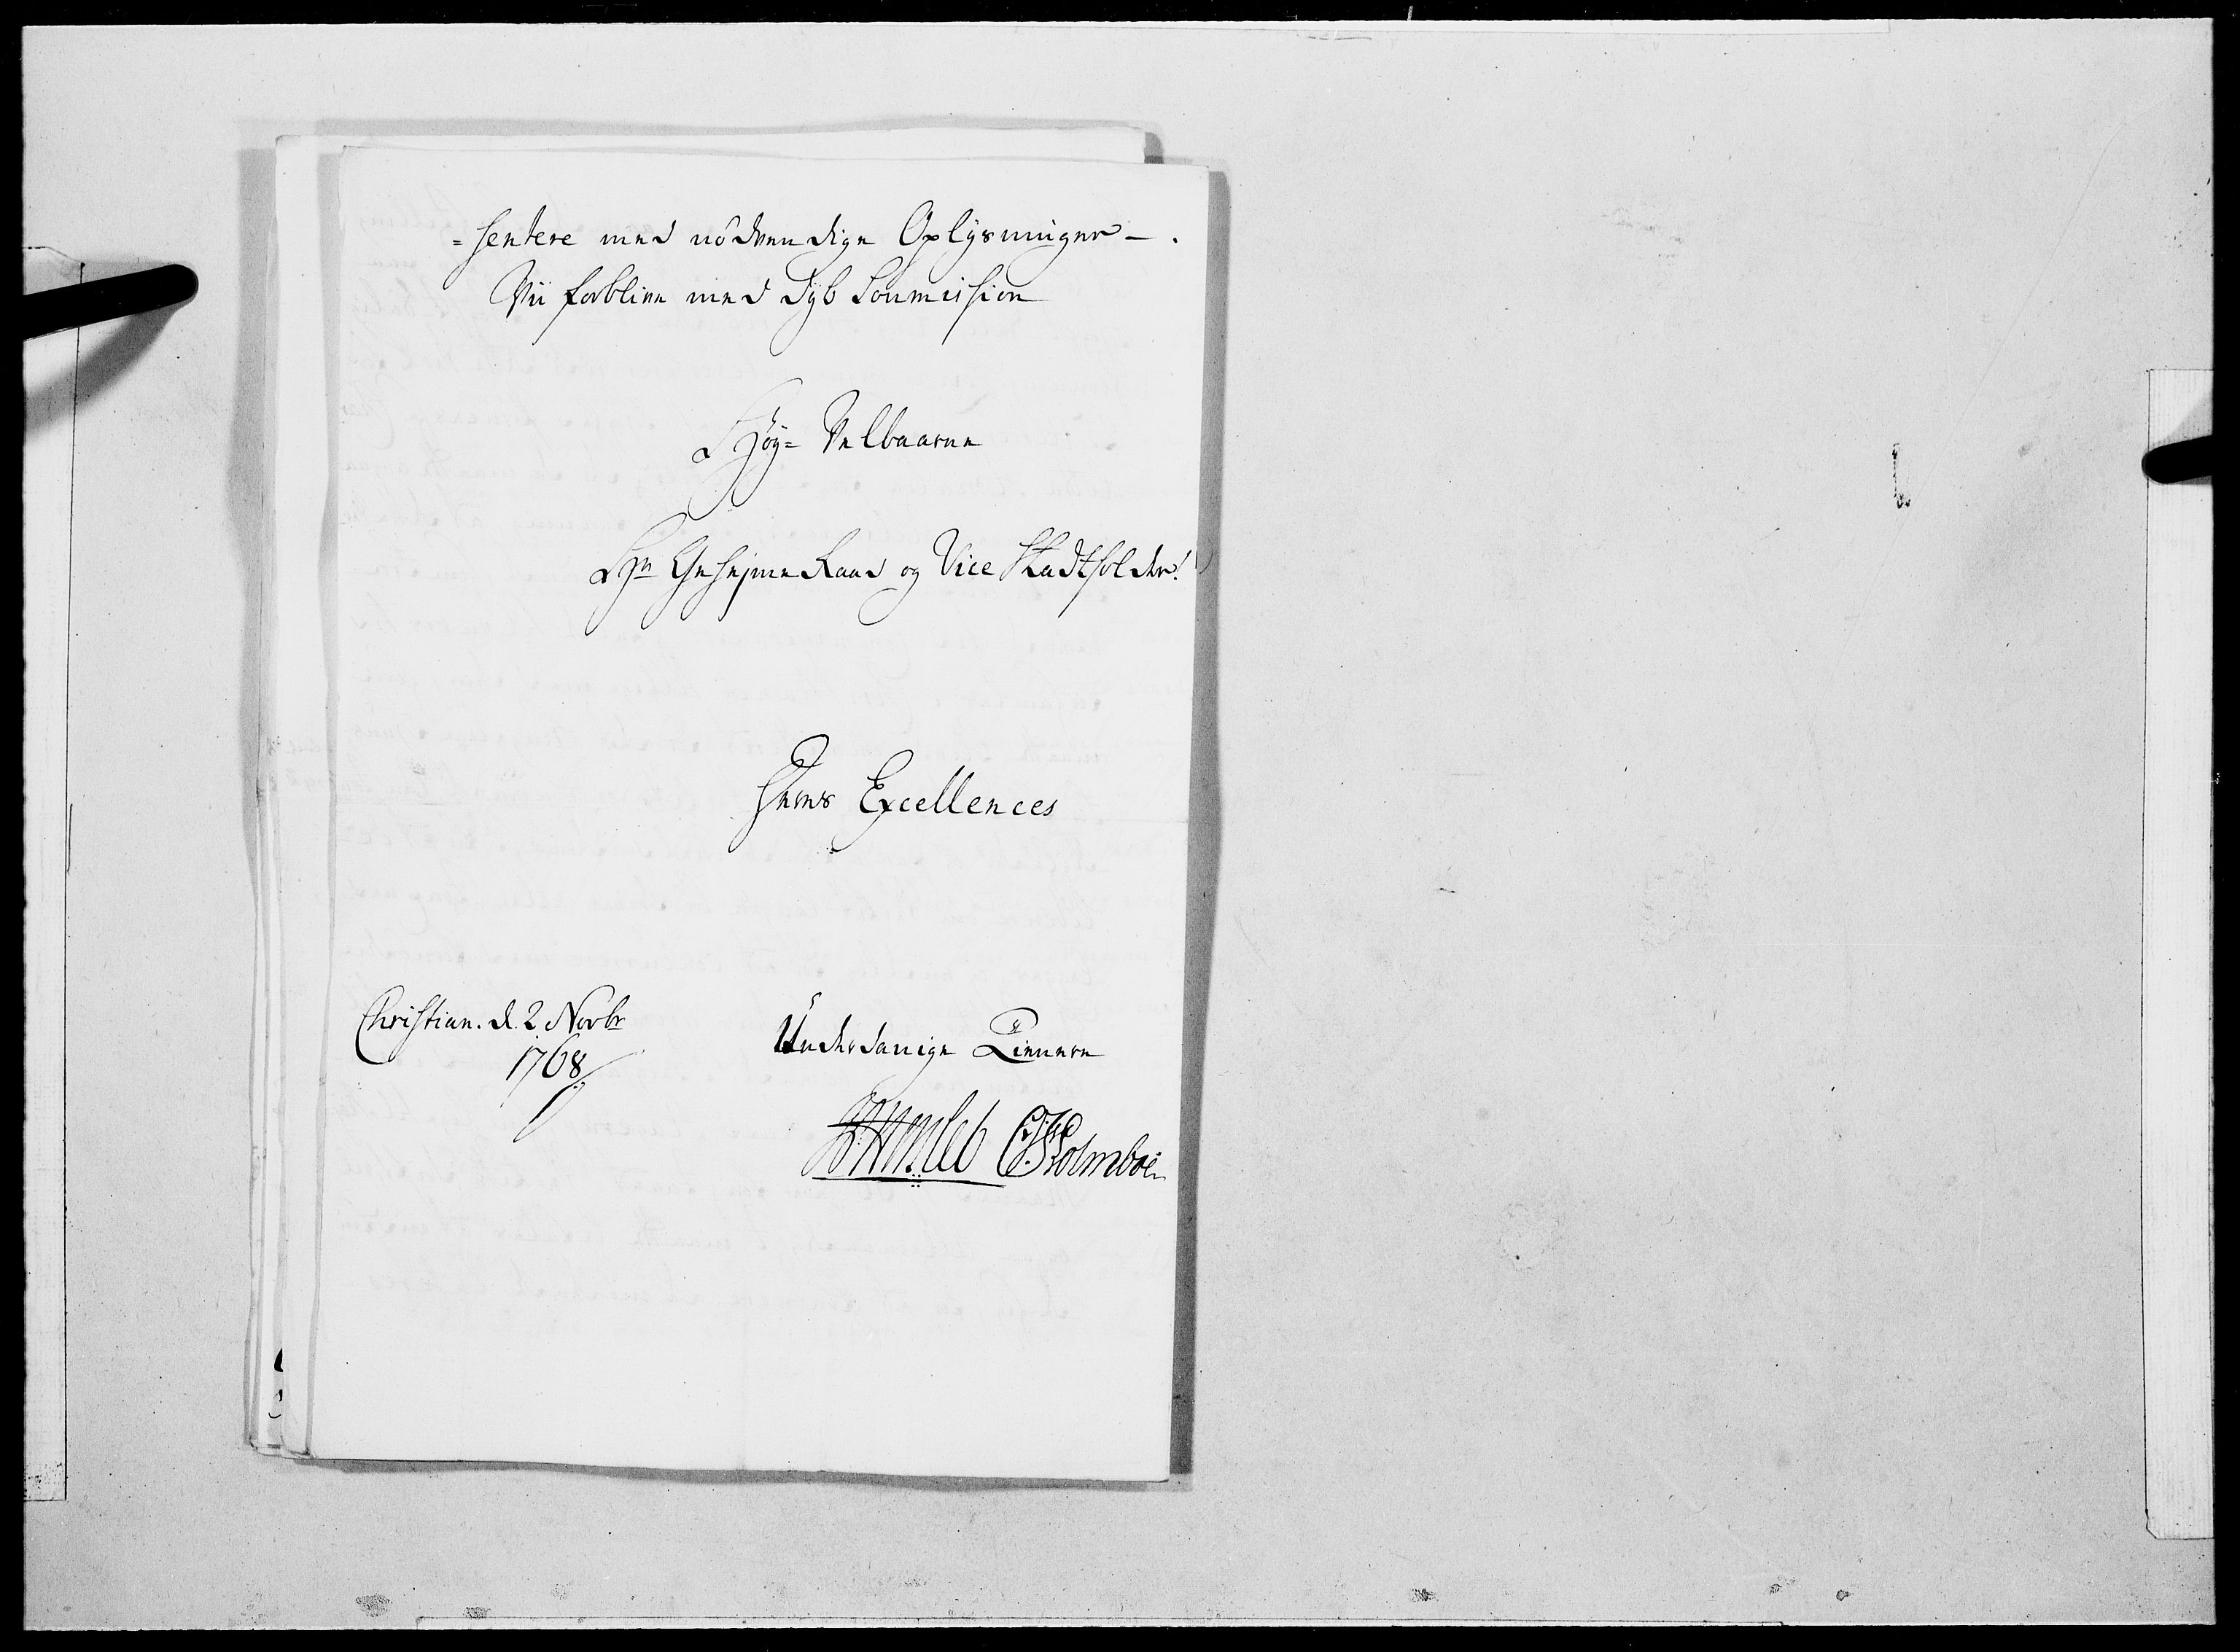 =sentere med nödvendige Oplÿsninger — .
Vii forblive med dÿb Soumission
Höÿ= Velbaarne
Hr Geheime Raad og Vice Stadtholder!
Deres Excellences
Christian. d. 2 Novbr
1768
Underdanige Tienere
Holmboe